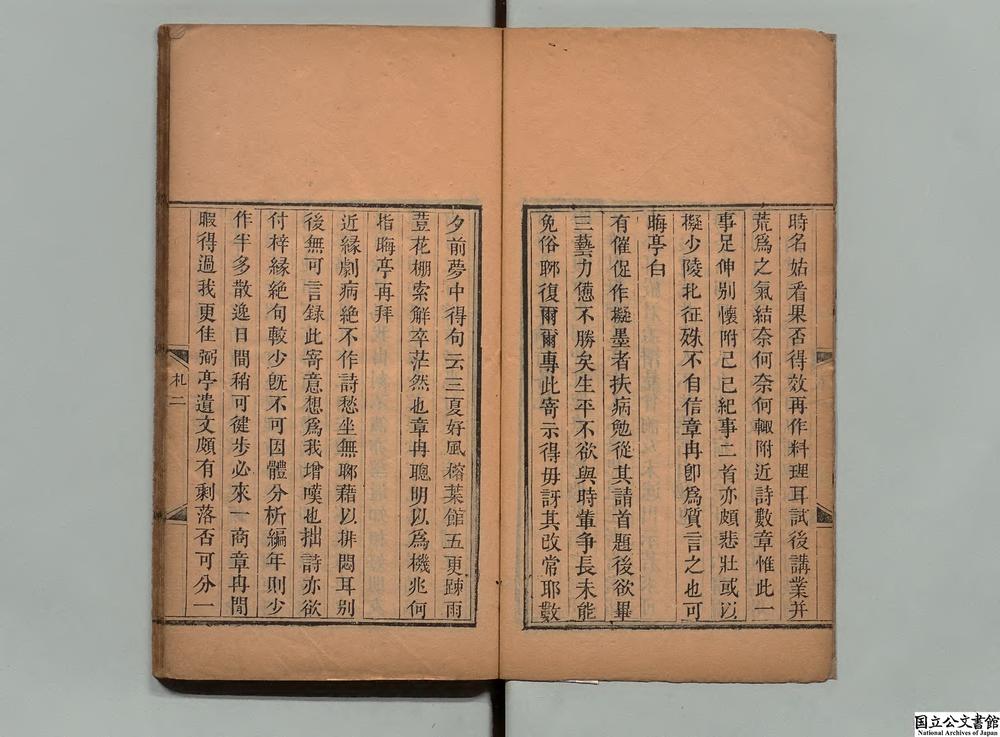 時名姑看果否得效再作料理耳試後講業并
荒爲之氣結奈何奈何輙附近詩數章惟此一
事足伸别懷附己巳紀事二首亦頗悲壯或以
擬少陵北征殊不自信章冉卽爲質言之也可
晦亭白
有催促作擬墨者扶病勉從其請首題後欲畢
三藝力憊不勝矣生平不欲與時輩争長未能
免俗聊復爾爾專此寄示得毋訝其改常耶數
夕前夢中得句云三夏好風穃葉館五更踈雨
荳花棚索解卒茫然也章冉聰明以爲機兆何
指晦亭再拜
近緣劇病絶不作詩愁坐無聊藉以排悶耳别
後無可言録此寄意想爲我增嘆也拙詩亦欲
付梓緣絶句較少旣不可因體分析編年則少
作半多散逸日間稍可健步必來一商章冉閒
暇得過我更佳弼亭遺文頗有剩落否可分一
札二
国立公文書館
National Archives of Japan